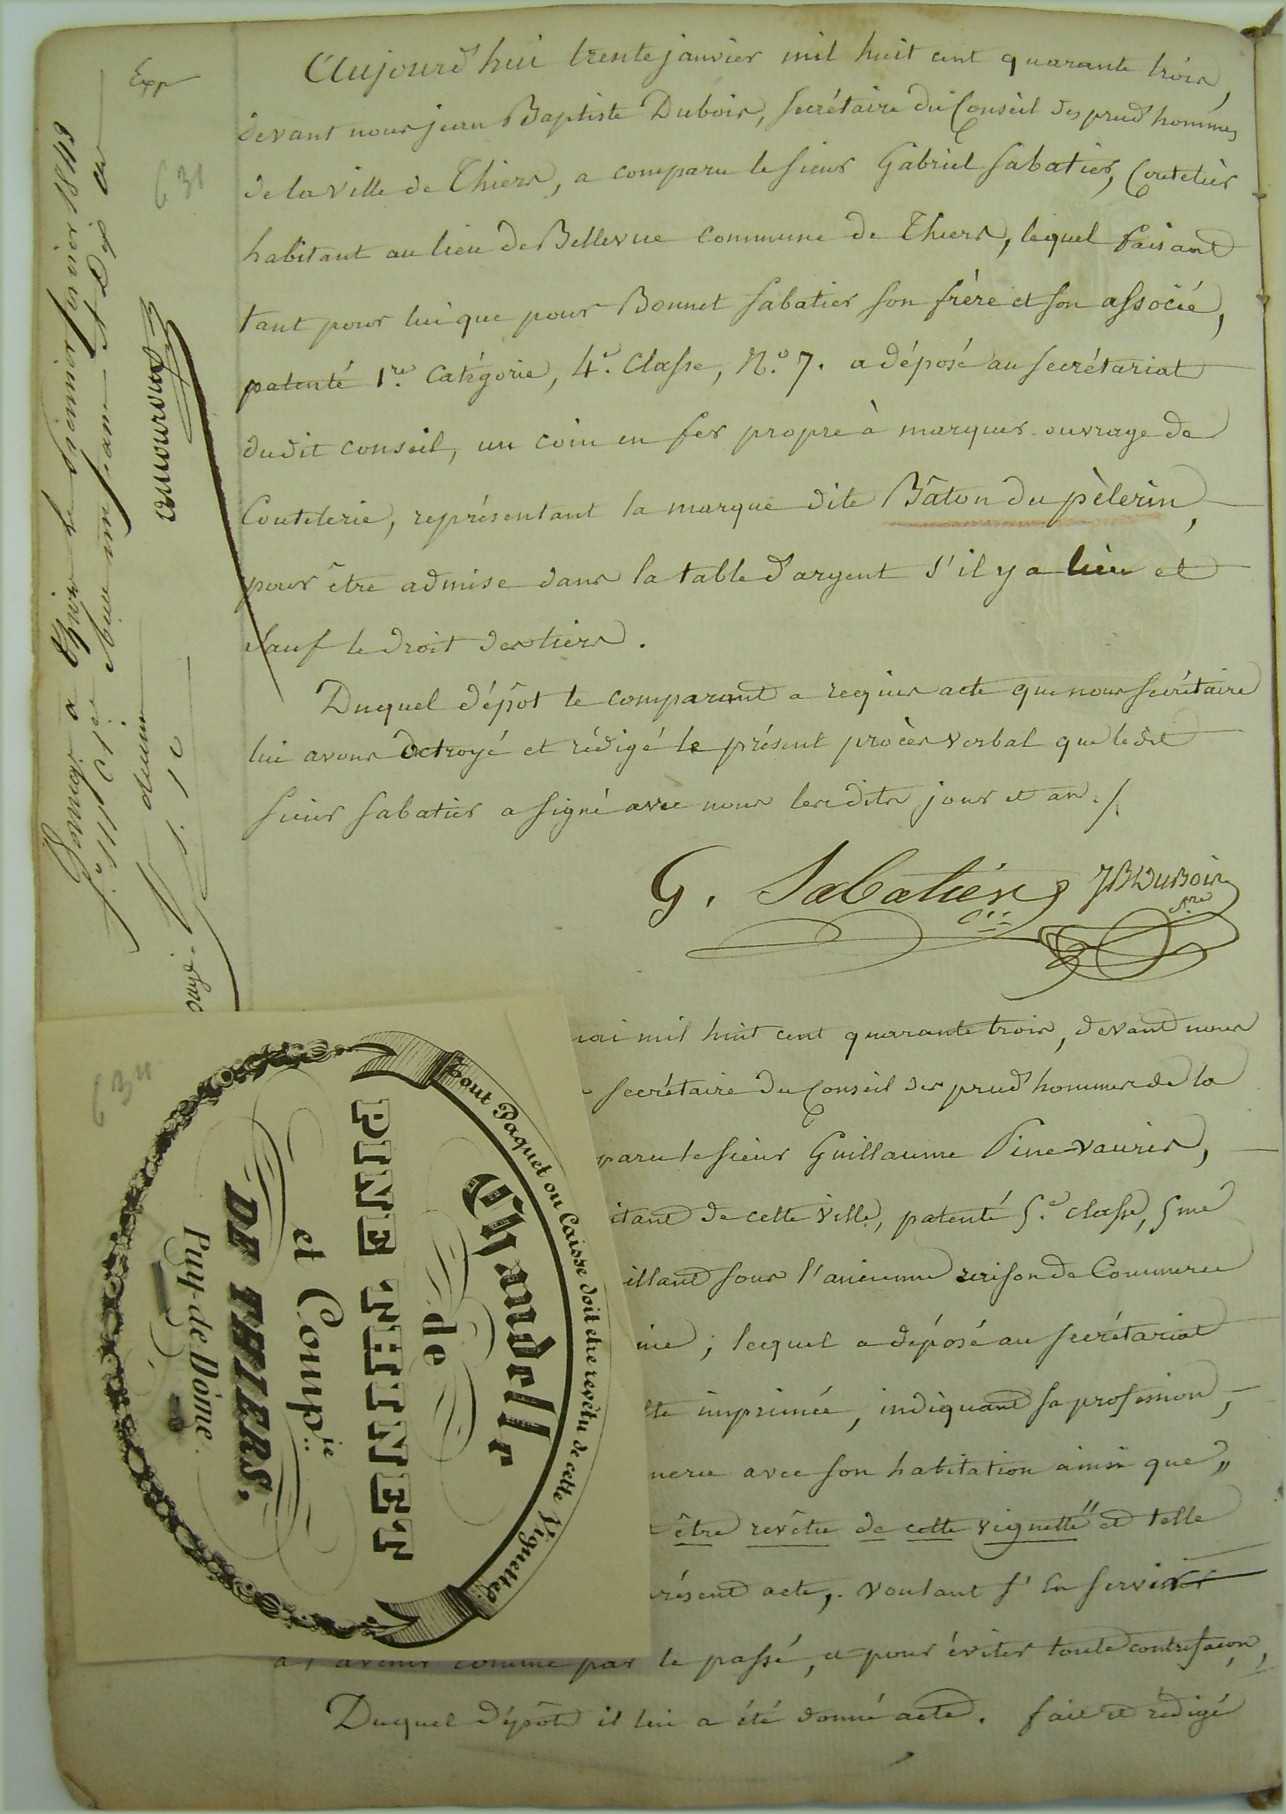 Exp
631
Aujourd'hui trente janvier mil huit cent quarante trois,
devant nous jean Baptiste Dubois, secrétaire du Conseil des prud'hommes
de la ville de Thiers, a comparu le sieur Gabriel Sabatier, Coutelier
habitant au lieu de Bellevue commune de Thiers, lequel faisant
tant pour lui que pour Bonnet Sabatier son frère et son associé,
patenté 1re. Catégorie, 4e. Classe, N.o 7. a déposé au secrétariat
dudit conseil, un coin en fer propre à marquer ouvrage de
Coutelerie, représentant la marque dite Bâton du pèlerin,
pour être admise dans la table d'argent s'il y a lieu et
sauf le droit des tiers.
Duquel dépôt le comparant a requis acte que nous secrétaire
lui avons octroyé et rédigé le présent procès verbal que ledit
sieur Sabatier a signé avec nous lesdits jour et an ./.
G. Sabatier JB Dubois
Sre
mai mil huit cent quarante trois, devant nous
secrétaire du Conseil des prud'hommes de la
paru le sieur Guillaume Pine-vaurier,
itant de cette ville, patenté 5.e classe, 5me
illant sous l'ancienne raison de Commerce
ine ; lequel a déposé au secrétariat
tte imprimée, indiquant sa profession,
merce avec son habitation ainsi que "
être revêtu de cette vignette" et telle
résent acte,. voulant s'en servir
a l'avenir comme par le passé, et pour éviter toute contrefaçon,
Duquel dépôt il lui a été donné acte. fait et rédigé
634
Tout Paquet ou Caisse doit être revêtu de cette Vignette
Chandelle
de
PINE THINET
et Comp.ie
DE THIERS.
Puy-de-Dôme.